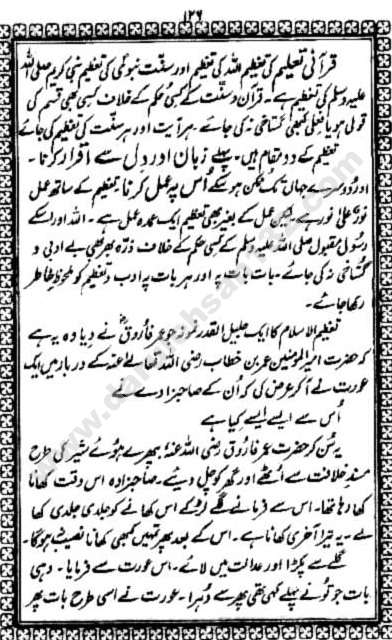 ۱۲۶
قرآنی تعلیم کی تعظیم اللہ کی تعظیم اور سنّت نبوی کی تعظیم نبی کریم صلی اللہ
علیہ وسلم کی تعظیم ہے۔ قرآن و سنّت کے کسی حکم کے خلاف کسی بھی قسم کی
قولی ہو یا فعلی کبھی گستاخی نہ کی جائے۔ ہر آیت اور ہر سنّت کی تعظیم کی جائے
تعظیم کے دو مقام ہیں۔ پہلے زبان اور دل سے اقرار کرنا۔
اور دوسرے جہاں تک ممکن ہو سکے اُس پہ عمل کرنا، تعظیم کے ساتھ عمل
نورٌ علیٰ نور ہے لیکن عمل کے بغیر بھی تعظیم ایک عمدہ عمل ہے۔ اللہ اور اسکے
رسول مقبول صلی اللہ علیہ وسلم کے کسی حکم کے خلاف ذرّہ بھر بھی بے ادبی و
گستاخی نہ کی جائے۔ بات بات پہ اور ہر بات پہ ادب و تعظیم کو ملحوظِ خاطر
رکھا جائے۔
تعظیم الاسلام کا ایک جلیل القدر نمونہ جو عمر فاروقؓ نے دیا وہ یہ ہے
کہ حضرت امیر المؤمنین عمر بن خطاب رضی اللہ تعالےٰ عنہ کے دربار میں ایک
عورت نے آ کر عرض کی کہ اُن کے صاحبزادے نے
اُس سے ایسے ایسے کیا ہے
یہ سُن کر حضرت عمر فاروق رضی اللہ عنہُ بپھرے ہوئے شیر کی طرح
مسندِ خلافت سے اُٹھے اور گھر کو چل دیئے۔ صاحبزادہ اس وقت کھانا
کھا رہا تھا۔ اس سے فرمانے لگے لڑکے اس کھانے کو جلدی جلدی کھا
لے۔ یہ تیرا آخری کھانا ہے۔ اس کے بعد پھر تمہیں کبھی کھانا نصیب نہ ہوگا۔
گلے سے پکڑا اور عدالت میں لائے۔ اس عورت سے فرمایا۔ وہی
بات جو تُو نے پہلے کہی تھی پھر سے دُہرا۔ عورت نے اسی طرح بات پھر